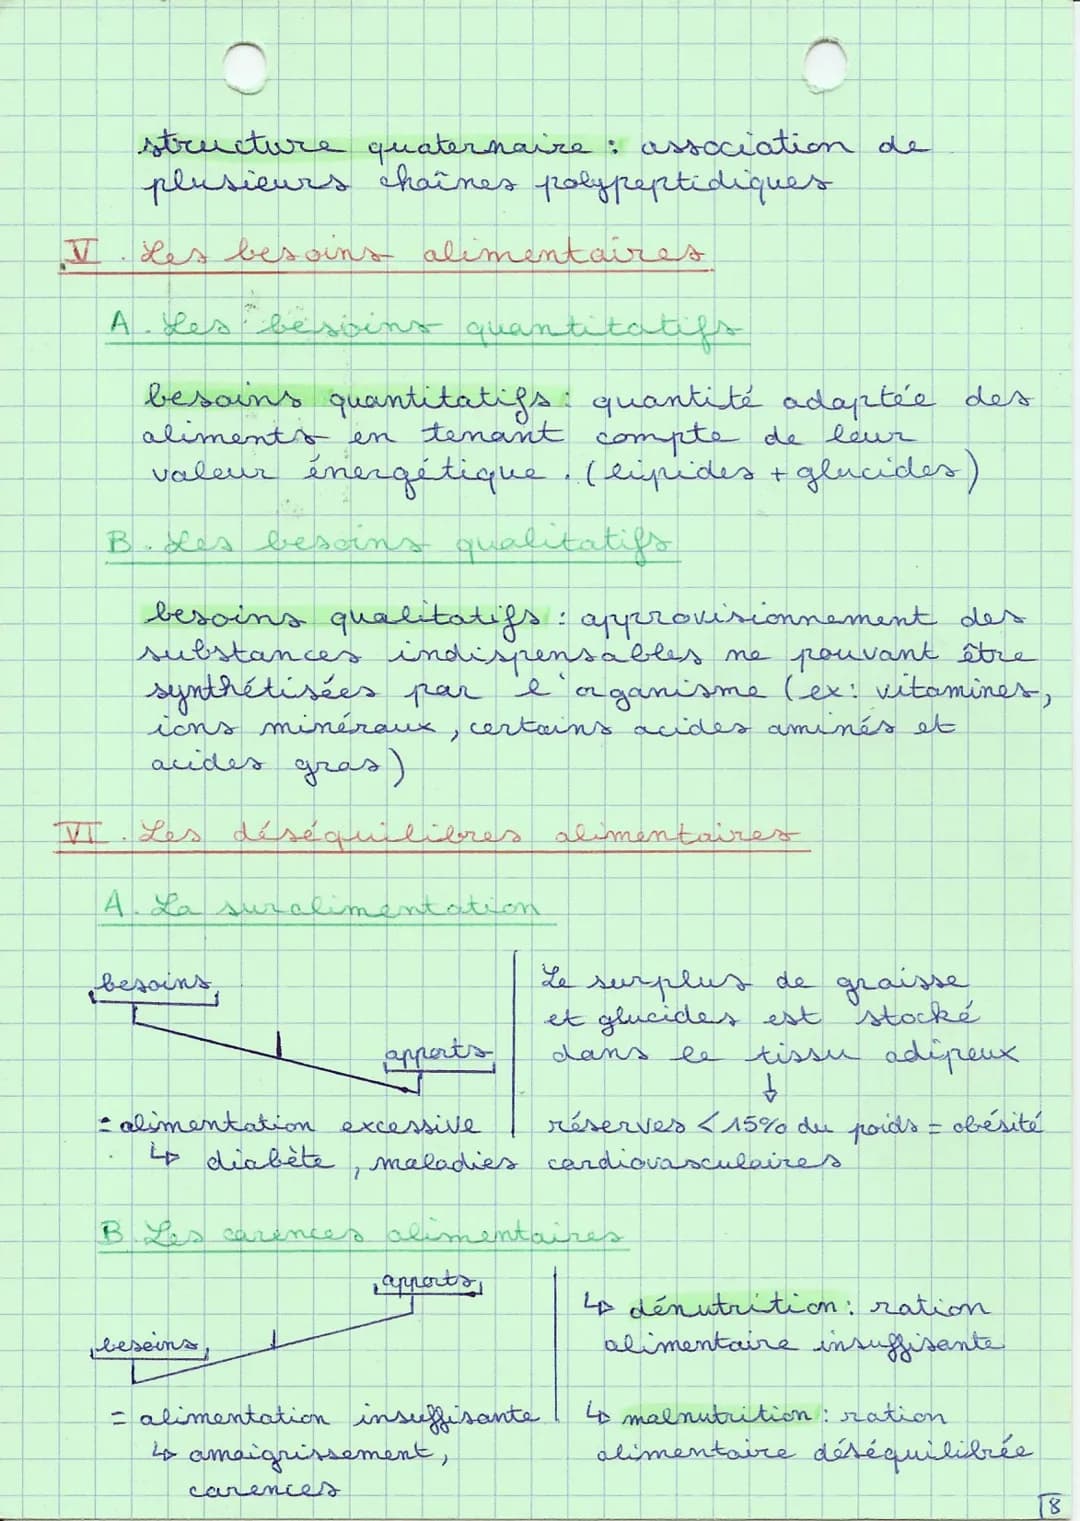 structure quaternaire : association de
plusieurs chaînes polypeptidiques
V. Les besoins alimentaires
A. Les besoins quantitatifs
besoins quantitatifs : quantité adaptée des
aliments en tenant compte de leur
valeur énergétique. (lipides + glucides)
B. Les besoins qualitatifs
besoins qualitatifs : approvisionnement des
substances indispensables ne pouvant être
synthétisées par l'organisme (ex: vitamines,
ions minéraux, certains acides aminés et
acides gras)
VI. Les déséquilibres alimentaires
A. La suralimentation
besoins
apports
= alimentation excessive
Le surplus de graisse
et glucides est stocké
dans le tissu adipeux
↓
réserves < 15% du poids = obésité
↳ diabète, maladies cardiovasculaires
B. Les carences alimentaires
apports
besoins
= alimentation insuffisante
↳ amaigrissement,
carences
↳ dénutrition : ration
alimentaire insuffisante
↳ malnutrition : ration
alimentaire déséquilibrée
8